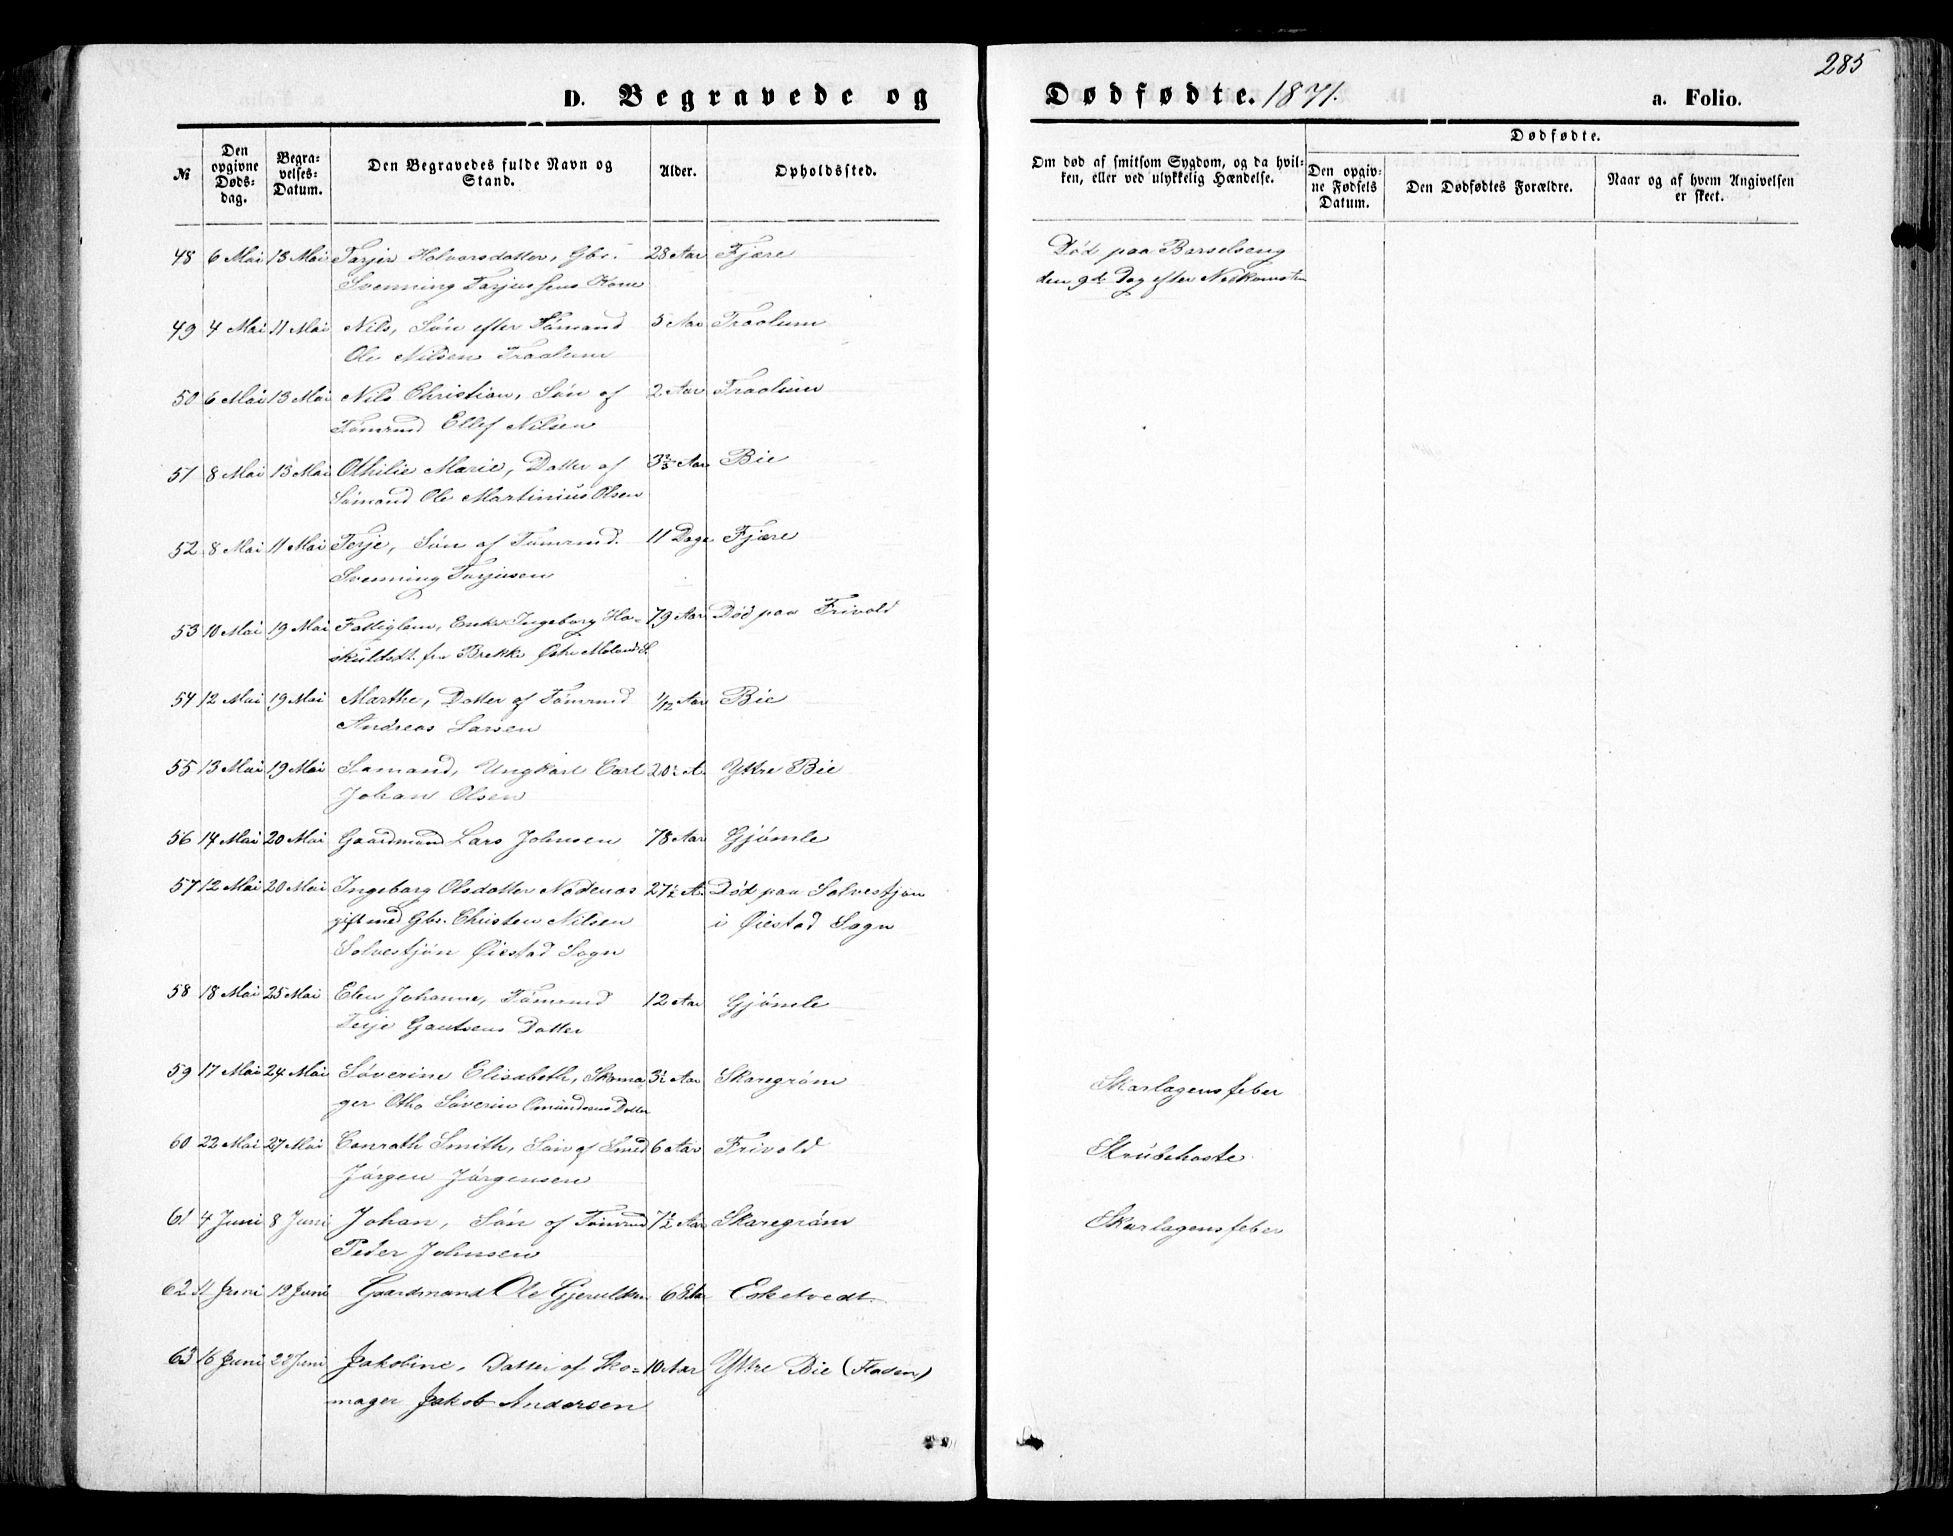 285
D. Begravede og Dødfødte. 1871. a. Folio.
№
Den opgivne Døds-dag.
Begra-velses-Datum.
Den Begravedes fulde Navn og Stand.
Alder.
Opholdssted.
Om død af smitsom Sygdom, og da hvil-
ken, eller ved ulykkelig Hændelse.
Dødfødte.
Den opgiv-ne Fødsels Datum.
Den Dødfødtes Forældre.
Naar og af hvem Angivelsen er skeet.
48 6 Mai 13 Mai Tarjer Halvorsdatter, Gbr. 28 Aar Fjære Død paa Barselseng
Svenning Tarjussens Kone den 9de Dag efter Nedkomsten
49 4 Mai 11 Mai Nils, Søn efter Sømand 5 Aar Traolum
Ole Nilsen Traolum
50 6 Mai 13 Mai Nils Christian, Søn af 2 Aar Traolum
Tømrmd Ellef Nilsen
51 8 Mai 13 Mai Othilie Marie, Datter af 3 2/3 Aar Bie
Sømand Ole Martinius Olsen
52 8 Mai 11 Mai Terje, Søn af Tømrmd. 11 Dage Fjære
Svenning Tarjusen
53 10 Mai 19 Mai Fattiglem, Enke Ingeborg Ha- 79 Aar Død paa Frivold
skuldsdt. fra Brekke Østre Moland S.
54 12 Mai 19 Mai Marthe, Datter af Tømrmd 1/12 Aar Bie
Andreas Larsen
55 13 Mai 19 Mai Sømand, Ungkarl Carl 20 1/2 A. Yttre Bie
Johan Olsen
56 14 Mai 20 Mai Gaardmand Lars Johnsen 78 Aar Gjømle
57 12 Mai 20 Mai Ingeborg Olsdatter Nødenæs 27 1/2 A. Død paa Solvestjøn
gift med Gbr. Christen Nilsen i Øiestad Sogn
Solvestjøn Øiestad Sogn
58 18 Mai 25 Mai Elen Johanne, Tømrmd 12 Aar Gjømle
Terje Gautsens Datter
59 17 Mai 24 Mai Søverine Elisabeth, Skoma- 3 1/2 Aar Skaregrøm Skarlagensfeber
ger Otho Søverin Omundsens Datter
60 22 Mai 27 Mai Conrath Smith, Søn af Smed 6 Aar Frivold Strubehoste
Jørgen Jørgensen
61 4 Juni 8 Juni Johan, Søn af Tømrmd 7 1/2 Aar Skaregrøm Skarlagensfeber
Peder Johnsen
62 11 Juni 19 Juni Gaardmand Ole Gjerulds. 68 Aar Esketvedt.
63 16 Juni 23 Juni Jakobine, Datter af Sko- 10 Aar Yttre Bie (Floden)
mager Jakob Andersen